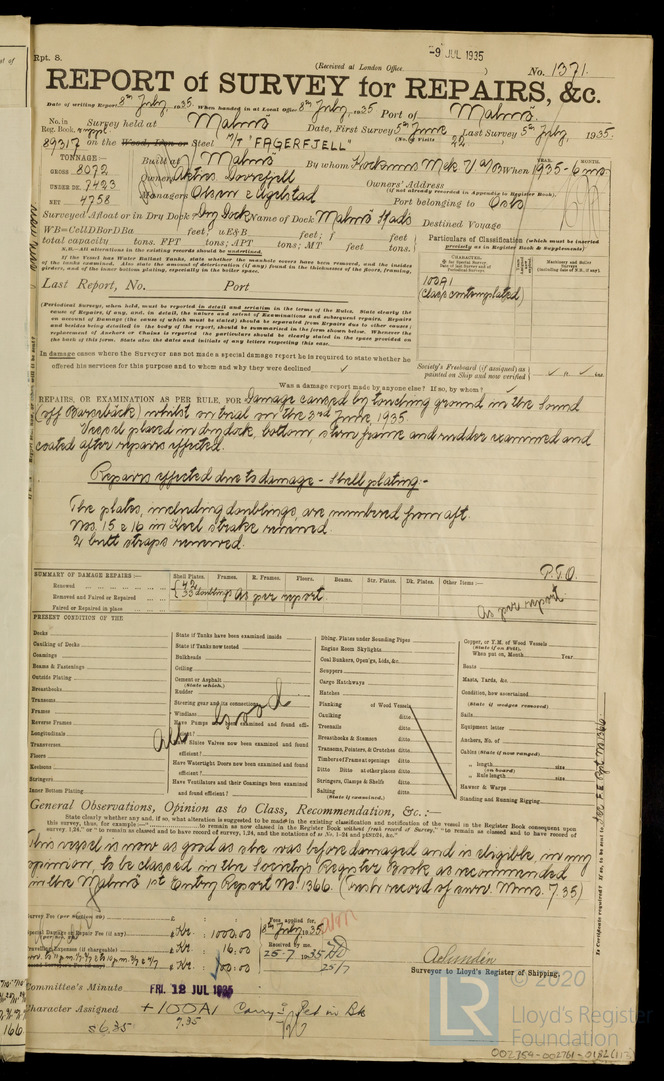 Rpt. 8.
-9 JUL 1935
(Received at London Office )
No. 1371.
REPORT of SURVEY for REPAIRS, &c.
Date of writing Report 8th July 1935. When handed in at Local Office 8th July, 1935 Port of Malmö.
No. in Reg. Book. Survey held at Malmö Date, First Survey 5th June Last Survey 5th July, 1935.
(No. of Visits 22)
89317 on the Wood, Iron or Steel M/T "FAGERFJELL"
TONNAGE:—
GROSS 8072
UNDER DK. 7423
NET 4758
Built at Malmö By whom Kockums Mek V. a/B When 1935 - 6 mo
YEAR. MONTH.
Owners Aktres Dovrefjell Owners' Address
(if not already recorded in Appendix to Register Book).
Managers Olsen & Ugelstad Port belonging to Oslo
Surveyed Afloat or in Dry Dock? Dry Dock Name of Dock Malmö Stads Destined Voyage
WB=CellDBorDBa feet; uE&B feet; f feet
total capacity tons. FPT tons; APT tons; MT feet tons.
N.B.—All alterations in the existing records should be underlined.
If the Vessel has Water Ballast Tanks, state whether the manhole covers have been removed, and the insides
of the tanks examined. Also state the amount of deterioration (if any) found in the thicknesses of the floors, framing,
girders, and of the inner bottom plating, especially in the boiler space.
Particulars of Classification (which must be inserted
precisely as in Register Book & Supplements)
100A1
(class contemplated)
Last Report, No. Port
(Periodical Survey, when held, must be reported in detail and seriatim in the terms of the Rules. State clearly the
cause of Repairs, if any, and, in detail, the nature and extent of Examinations and subsequent repairs. Repairs
on account of Damage (the cause of which must be stated) should be separated from Repairs due to other causes;
and besides being detailed in the body of the report, should be summarized in the form shown below. Whenever the
replacement of Anchors or Chains is reported the particulars should be clearly stated in the space provided on
the back of this form. State also the dates and initials of any letters respecting this case.
In damage cases where the Surveyor has not made a special damage report he is required to state whether he
offered his services for this purpose and to whom and why they were declined ✓
Society's Freeboard (if assigned) as
painted on Ship and now verified
Was a damage report made by anyone else? If so, by whom?
REPAIRS, OR EXAMINATION AS PER RULE, FOR Damage caused by touching ground in the Sound
(off Barsebäck) whilst on trial on the 3rd June, 1935
Vessel placed in drydock, bottom, stern frame and rudder examined and
coated after repairs effected.
Repairs effected due to damage - Shell plating:-
The plates, including doublings, are numbered from aft.
Nos. 15 & 16 in Keel strake renewed.
2 butt straps renewed.
P.T.O.
SUMMARY OF DAMAGE REPAIRS:—
Shell Plates. Frames. R. Frames. Floors. Beams. Str. Plates. Dk. Plates. Other Items:—
Renewed
Removed and Faired or Repaired
Faired or Repaired in place
33 doublings as per report
as per report
PRESENT CONDITION OF THE
Decks
Caulking of Decks
Coamings
Beams & Fastenings
Outside Plating
Breasthooks
Transoms
Frames
Reverse Frames
Longitudinals
Transverses
Floors
Keelsons
Stringers
Inner Bottom Plating
All
State if Tanks have been examined inside
State if Tanks now tested
Bulkheads
Ceiling
Cement or Asphalt
(State which.)
Rudder
Steering gear and its connections
Windlass
Have Pumps been examined and found efficient?
Have Sluice Valves now been examined and found
efficient?
Have Watertight Doors now been examined and found
efficient?
Have Ventilators and their Coamings been examined
and found efficient?
Good
Dblng. Plates under Sounding Pipes
Engine Room Skylights
Coal Bunkers, Open'gs, Lids, &c.
Scuppers
Cargo Hatchways
Hatches
Planking of Wood Vessels
Caulking ditto
Treenails ditto
Breasthooks & Stemson ditto
Transoms, Pointers, & Crutches ditto
Timbers of Frame at openings ditto
Ditto Ditto at other places ditto
Stringers, Clamps & Shelfs ditto
Salting ditto
(State if examined.)
Copper, or Y.M. of Wood Vessels
(State if on Felt).
When put on, Month Year
Boats
Masts, Yards, &c.
Condition, how ascertained
(State if wedges removed)
Sails
Equipment letter
Anchors, No. of
Cables (State if now ranged)
„ length size
(on board)
„ Rule length size
Hawser & Warps
Standing and Running Rigging
General Observations, Opinion as to Class, Recommendation, &c.:—
State clearly whether any, if so, what alteration is suggested to be made in the existing classification and notification of the vessel in the Register Book consequent upon
This vessel is now as good as she was before damaged and is eligible, in my
opinion, to be classed in the Society's Register Book as recommended
in the Malmö 1st Entry Report No. 1366. (with record of surv. Mmö. 7.35)
Survey Fee (per Section 29) £
Special Damage or Repair Fee (if any) £ Kr. 1000:00
Travelling Expenses (if chargeable) £ Kr. 16:00
Fees applied for,
8th July 1935
Received by me,
25-7 1935
25/7
Surveyor to Lloyd's Register of Shipping.
Committee's Minute FRI. 12 JUL 1935
Character Assigned + 100A1
7.35
s 6.35
Is Certificate required? If so, to be sent to
© 2020
LR
Lloyd's Register
Foundation
002754-002761-0182 (1/3)
166